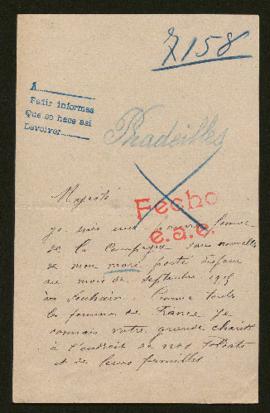 7158
A
Pedir informes
Que se hace así
Devolver
Pradeilles
Majesté
Fecho
e.a.c.
je suis une pauvre femme
de la campagne sans nouvelles
de mon mari porté disparu
au mois de septembre 1915
à Souhain. Comme toutes
les femmes de France je
connais votre grande charité
à l'endroit de nos soldats
et de leurs familles